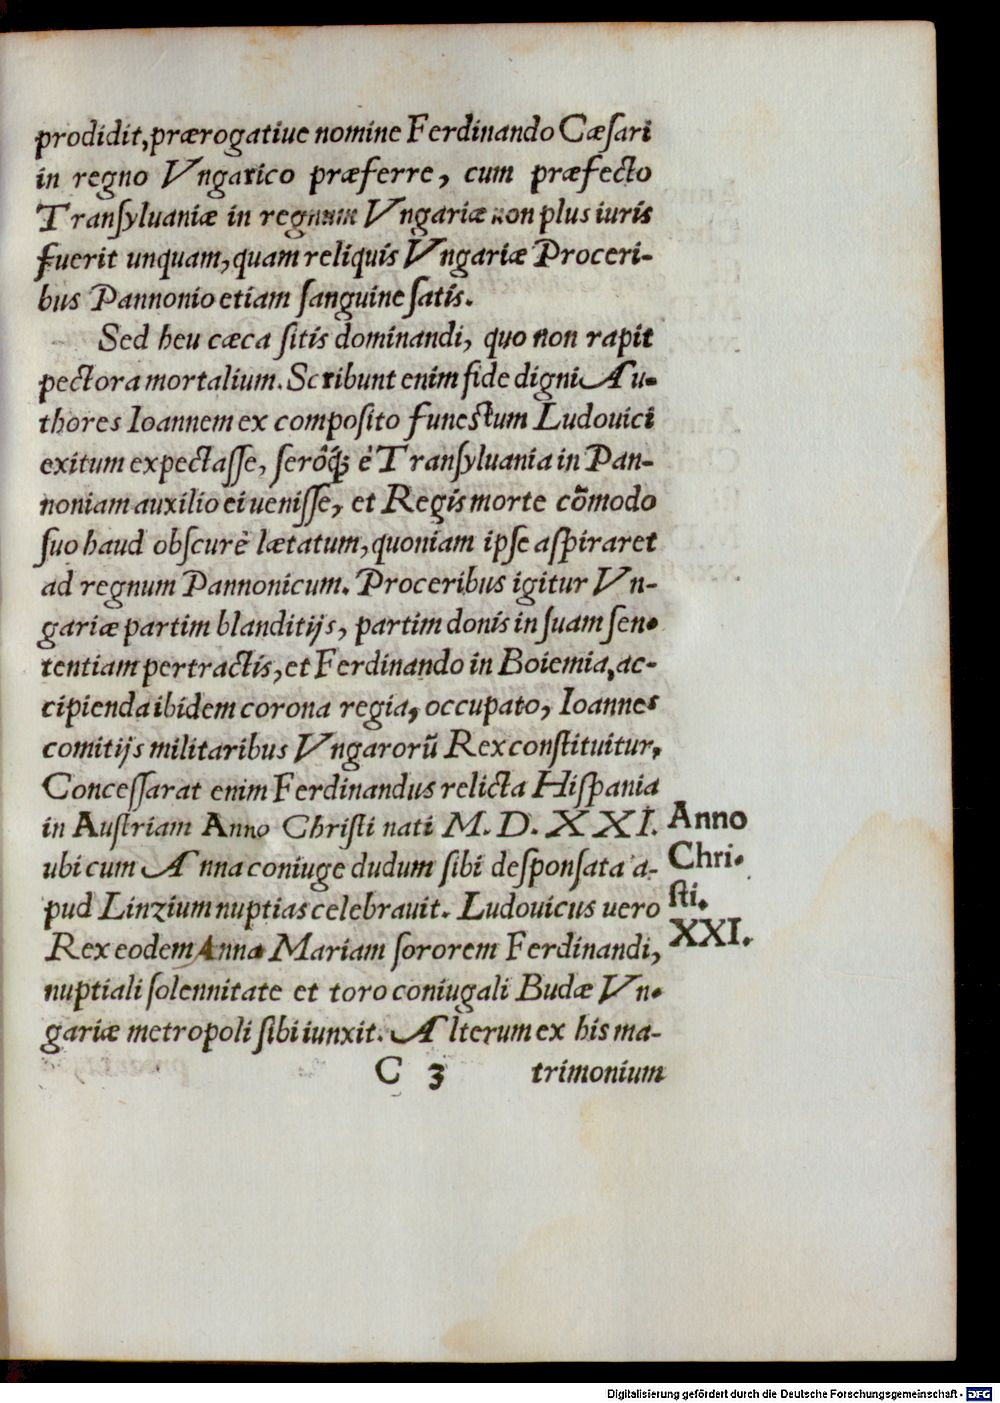 prodidit, prærogatiue nomine Ferdinando Cæsari
in regno Vngarico præferre, cum præfecto
Transyluaniæ in regnum Vngariæ non plus iuris
fuerit unquam, quam reliquis Vngariæ Proceri-
bus Pannonio etiam sanguine satis.
Sed heu cæca sitis dominandi, quo non rapit
pectora mortalium. Scribunt enim fide digni Au-
thores Ioannem ex composito funestum Ludouici
exitum expectasse, serôq́; è Transyluania in Pan-
noniam auxilio ei uenisse, et Regis morte cõmodo
suo haud obscurè lætatum, quoniam ipse aspiraret
ad regnum Pannonicum. Proceribus igitur Vn-
gariæ partim blanditijs, partim donis in suam sen-
tentiam pertractis, et Ferdinando in Boiemia, ac-
cipienda ibidem corona regia, occupato, Ioannes
comitijs militaribus Vngarorũ Rex constituitur,
Concessarat enim Ferdinandus relicta Hispania
in Austriam Anno Christi nati M. D. XXI.
ubi cum Anna coniuge dudum sibi desponsata a-
pud Linzium nuptias celebrauit. Ludouicus uero
Rex eodem Anna Mariam sororem Ferdinandi,
nuptiali solennitate et toro coniugali Budæ Vn-
gariæ metropoli sibi iunxit. Alterum ex his ma-
C 3 trimonium
Anno
Chri-
sti.
XXI.
Digitalisierung gefördert durch die Deutsche Forschungsgemeinschaft - DFG